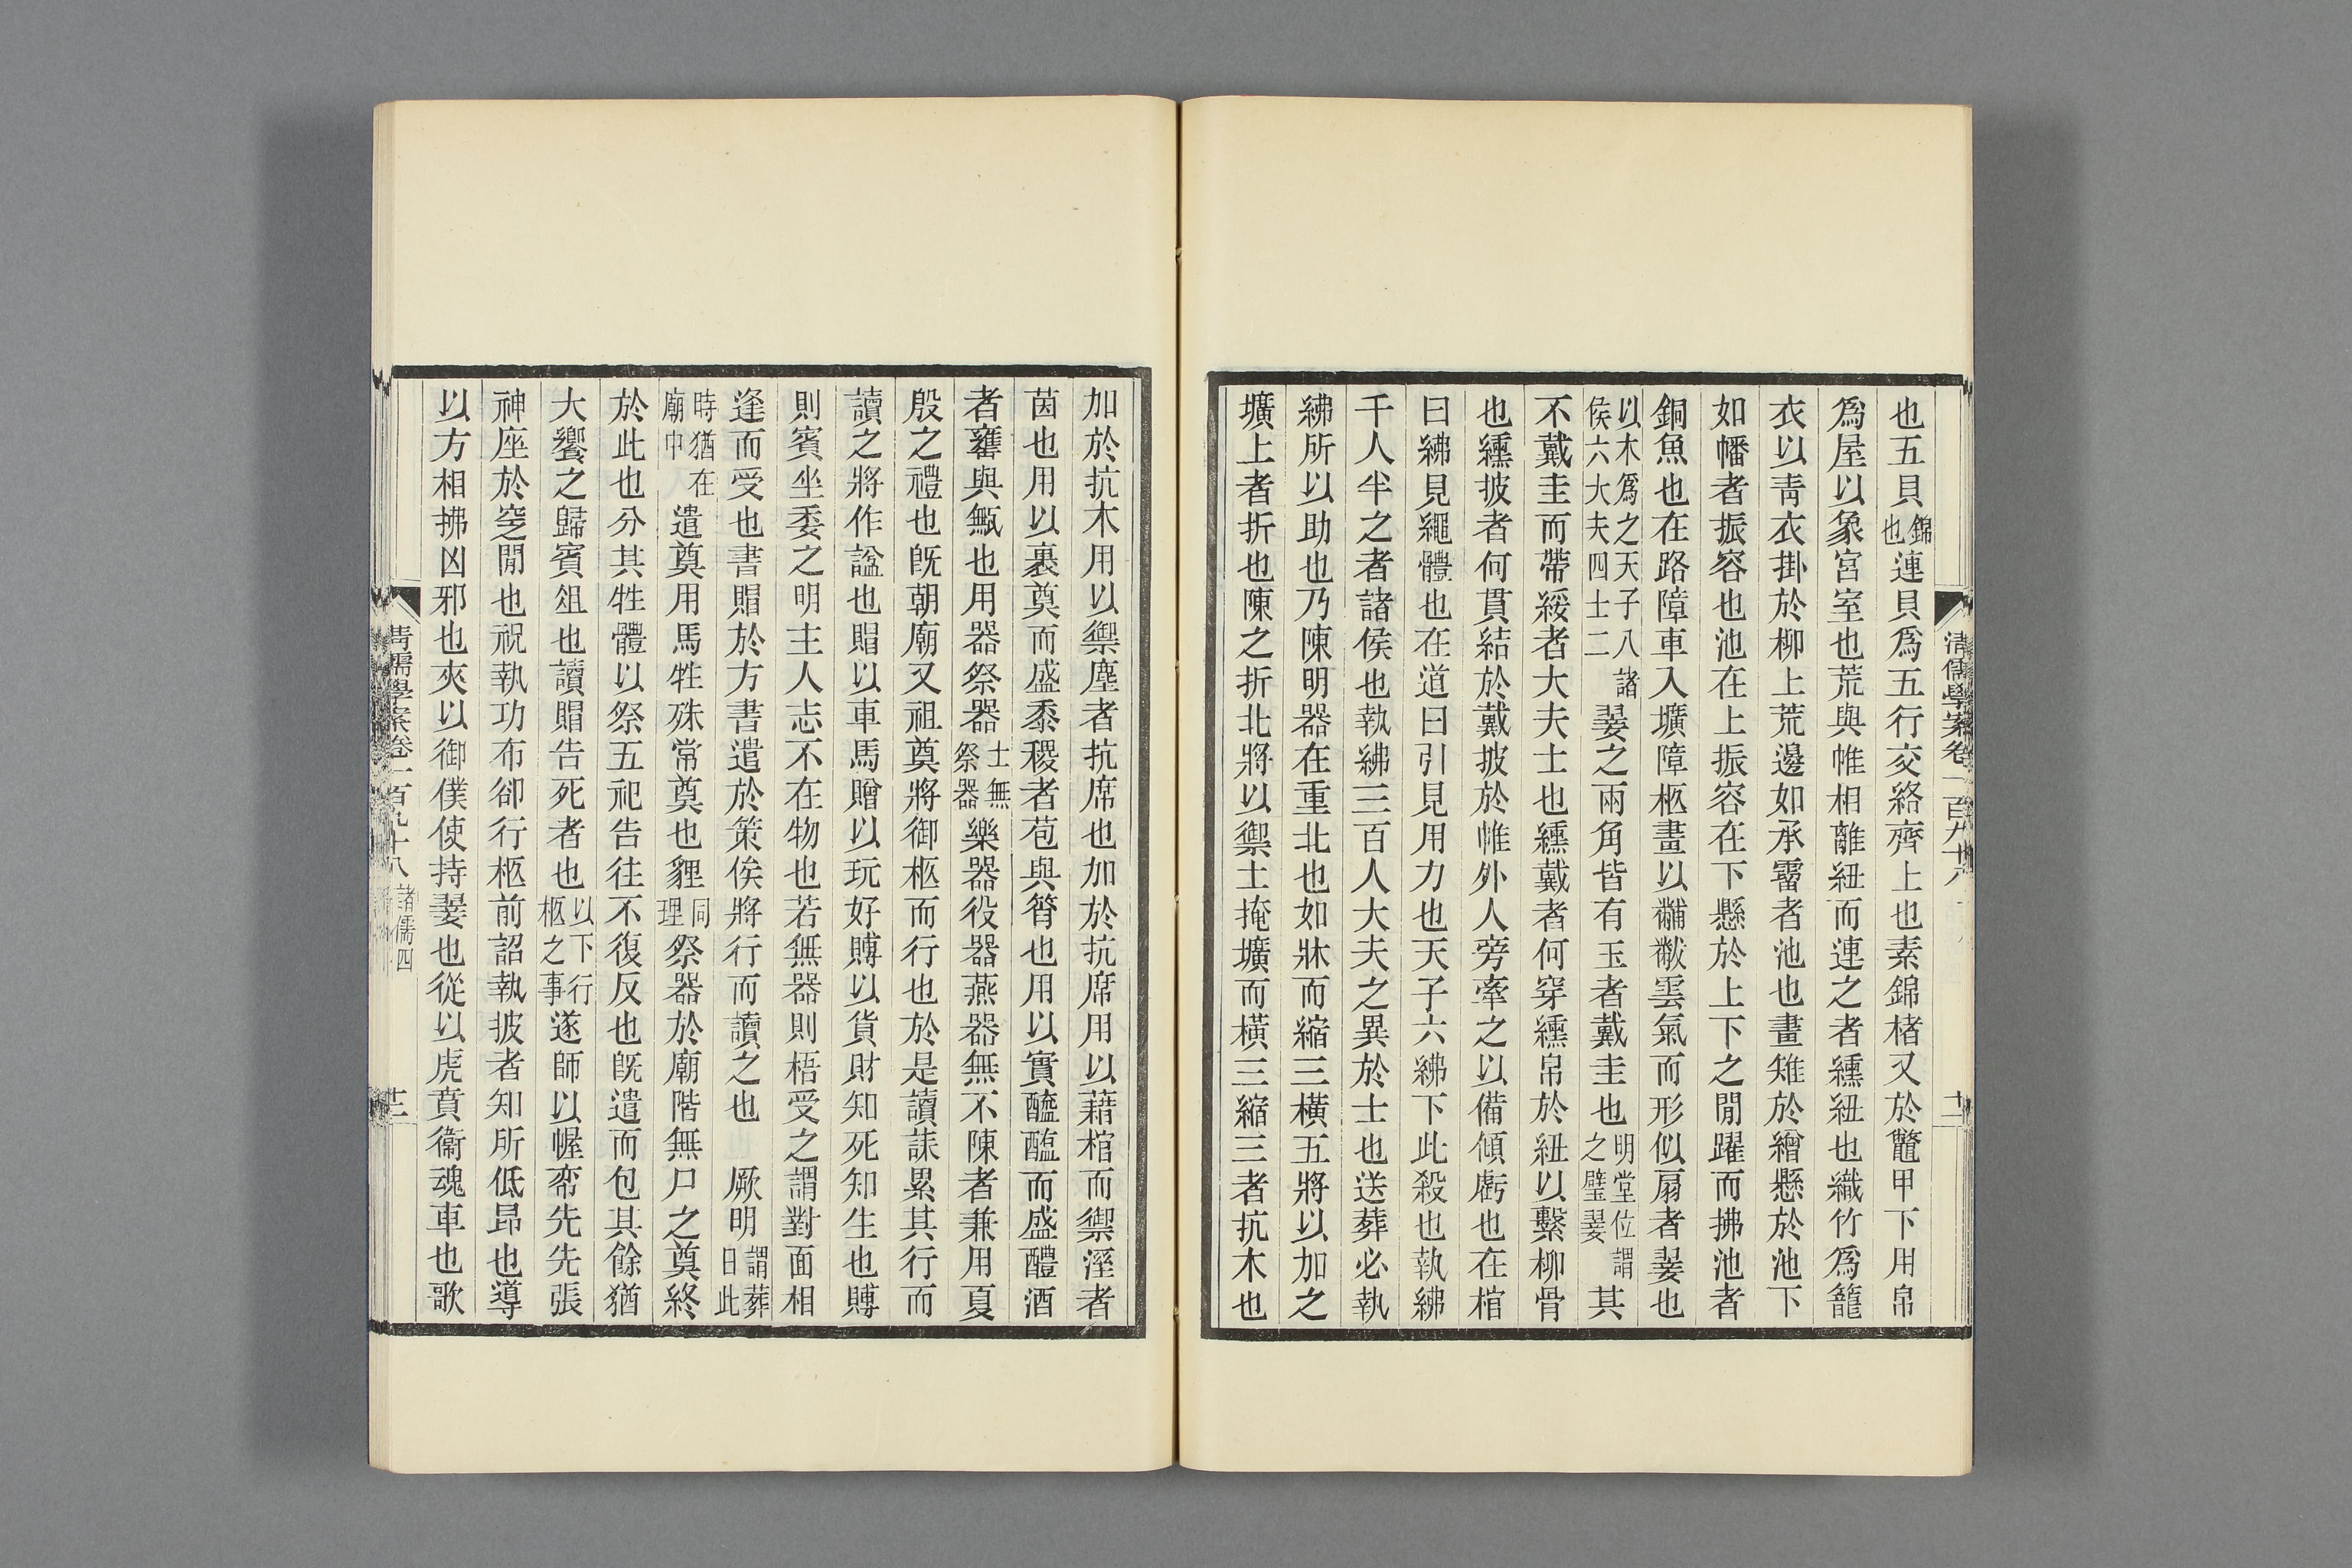 也五貝錦也連貝爲五行交絡齊上也素錦楮又於鼈甲下用帛
爲屋以象宮室也荒與帷相離紐而連之者纁紐也織竹爲籠
衣以靑衣掛於柳上荒邊如承霤者池也畫雉於繒懸於池下
如幡者振容也池在上振容在下懸於上下之閒躍而拂池者
銅魚也在路障車入壙障柩畫以黼黻雲氣而形似扇者翣也
以木爲之天子八諸侯六大夫四士二翣之兩角皆有玉者戴圭也明堂位謂之璧翣其
不戴圭而帶綏者大夫士也纁戴者何穿纁帛於紐以繫柳骨
也纁披者何貫結於戴披於帷外人旁牽之以備傾虧也在棺
曰紼見繩體也在道曰引見用力也天子六紼下此殺也執紼
千人半之者諸侯也執紼三百人大夫之異於士也送葬必執
紼所以助也乃陳明器在重北也如牀而縮三橫五將以加之
壙上者折也陳之折北將以禦土掩壙而橫三縮三者抗木也
清儒學案卷一百九十八
十二
加於抗木用以禦塵者抗席也加於抗席用以藉棺而禦溼者
茵也用以裹奠而盛黍稷者苞與筲也用以實醯醢而盛醴酒
者罋與甒也用器祭器士無祭器樂器役器燕器無不陳者兼用夏
殷之禮也旣朝廟又祖奠將御柩而行也於是讀誄累其行而
讀之將作諡也賵以車馬贈以玩好賻以貨財知死知生也賻
則賓坐委之明主人志不在物也若無器則梧受之謂對面相
逢而受也書賵於方書遣於策俟將行而讀之也　厥明謂葬日此
時猶在廟中遣奠用馬牲殊常奠也貍同理祭器於廟階無尸之奠終
於此也分其牲體以祭五祀告往不復反也旣遣而包其餘猶
大饗之歸賓俎也讀賵告死者也以下行柩之事遂師以幄帟先先張
神座於窆閒也祝執功布卻行柩前詔執披者知所低昂也導
以方相拂凶邪也夾以御僕使持翣也從以虎賁衞魂車也歌
清儒學案卷一百九十八
諸儒四
十三